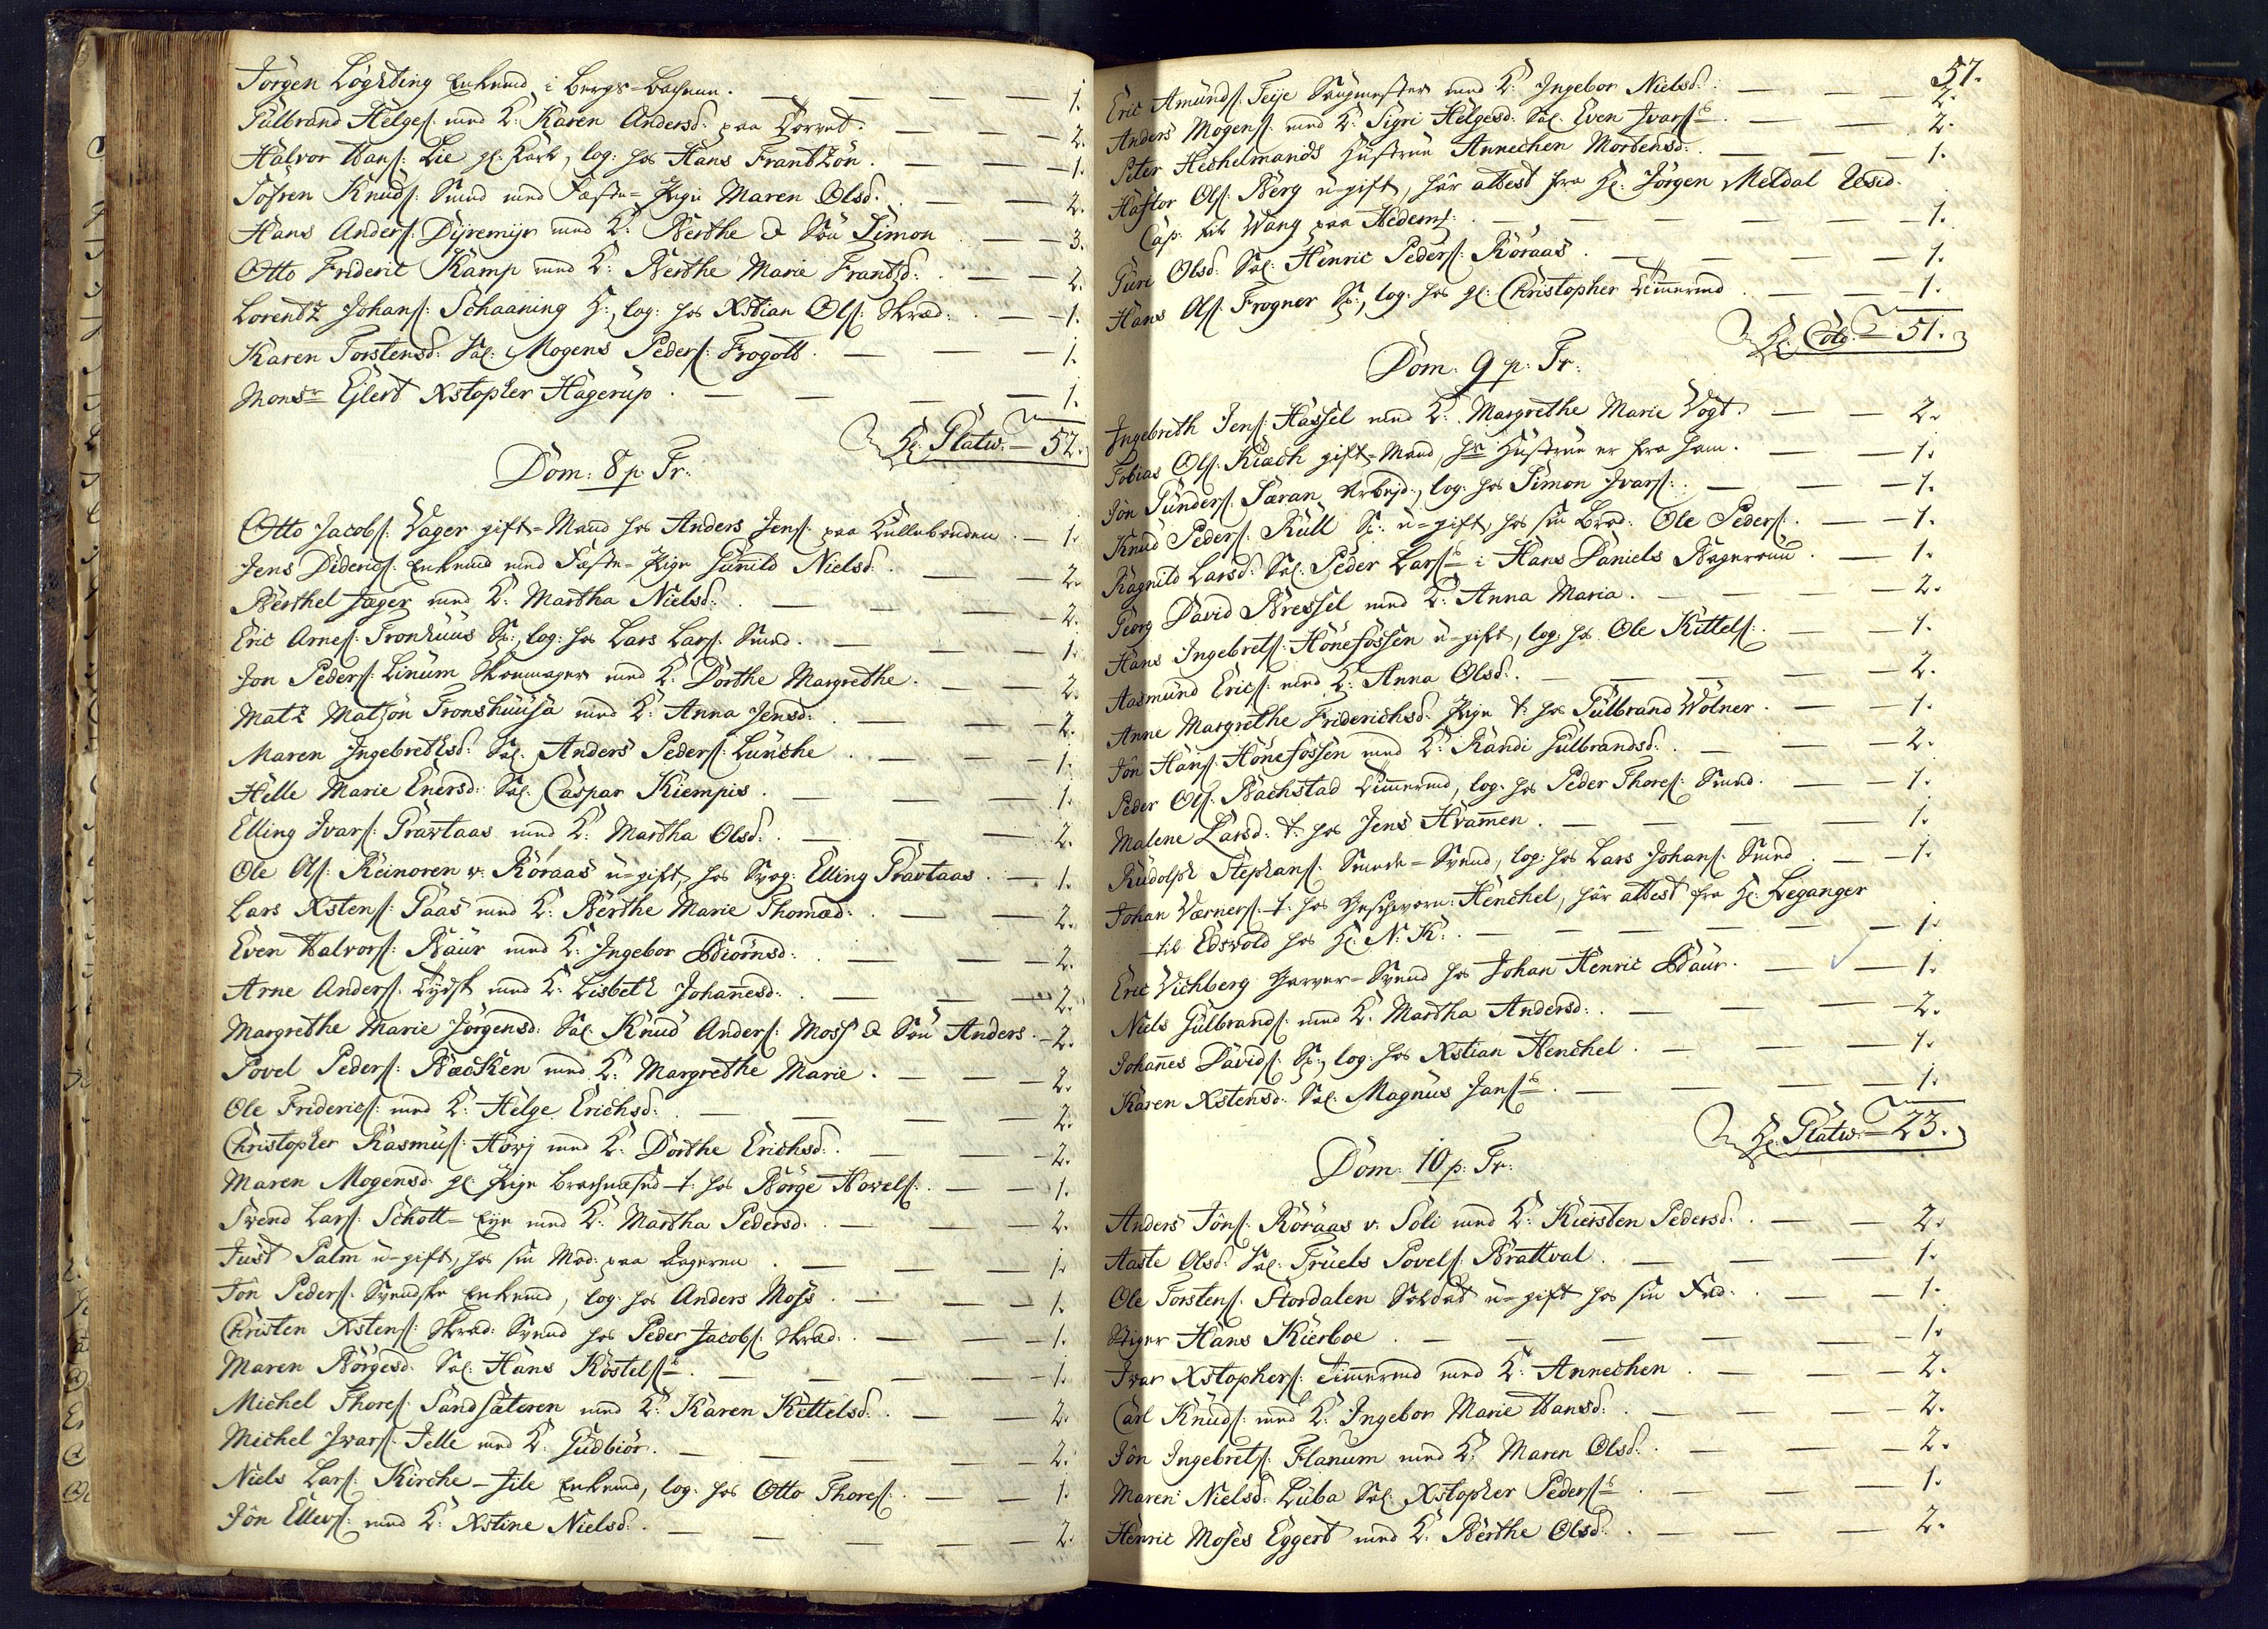 Jörgen Lögsting Enkemd i Bergs-Bachene. — 1.
Gulbrand Helges: med K: Karen Andersd: paa Torvet. — 2.
Halvor Hans: Lie gl: Karl, log: hos Hans Frantzön. — 1.
Söfren Knuds: Smed med Fæste-Pige Maren Olsd: — 2.
Hans Anders: Dyremyr med K: Berthe & Sön Simon — 3.
Otto Frideric Kamp med K: Berthe Marie Frantzd: — 2.
Lorentz Johans: Schaaning log: hos Xstian Ols: Skræd: — 1.
Karen Torstensd: Sal: Mogens Peders: Frogott. — 1.
Monsr Eylert Xstopher Hagerup. — 1.
Hr: Platw: — 52.
Dom: 8 p: Tr:
Otto Jacobs: Vager gift-Mand hos Anders Jens: paa — 1.
Jens Diderics: Enkemd med Fæste-Pige Gunild Nielsd: — 2.
Berthel Jæger med K: Martha Nielsd: — 2.
Eric Arnes: Tronhuus S:, log: hos Lars Lars: Smed. — 1.
Jon Peders: Linum Skoemager med K: Dorthe Margrethe. — 2.
Matz Matzön Tronshuusa med K: Anna Jensd: — 2.
Maren Ingebrethsd: Sal: Anders Peders: Lunche — 1.
Helle Marie Enersd: Sal: Caspar Kiempis. — 1.
Elling Ivars: Gravtaas med K: Martha Olsd: — 2.
Ole Ols: Reinoren v: Röraas u-gift, hos Svog: Elling Gravtaas. — 1.
Lars Xstens: Gaas med K: Berthe Marie Thomæd: — 2.
Even Halvors: Baur med K: Ingebor Biörnsd: — 2.
Arne Anders: Tydsk med K: Lisbeth Johan̄esd: — 2.
Margrethe Marie Jörgensd: Sal: Knud Anders: Moss & Sön Anders. — 2.
Povel Peders: Bacchen med K: Margrethe Marie. — 2.
Ole Friderics: med K: Helge Erichsd: — 2.
Christopher Rasmus: Hovj med K: Dorthe Erichsd: — 2.
Maren Mogensd: gl: Pige t: hos Börge Hovels: — 1.
Svend Lars: Schott-Eye med K: Martha Pedersd: — 2.
Just Palm u-gift, hos sin Mod: paa Lageren — 1.
Jön Peders: Svenske Enkemd, log: hos Anders Moss — 1.
Christen Xstens: Skræd: Svend hos Peder Jacobs: Skræd: — 1.
Maren Börgesd: Sal: Hans Köstels: — 1.
Michel Thores: Sandsæteren med K: Karen Kittelsd: — 2.
Michel Ivars: Jelle med K: Gudbiör. — 2.
Niels Lars: Kirche-Jile Enkemd, log: hos Otto Thores: — 1.
Jön Ellevs: med K: Xstine Nielsd: — 2.
57.
Eric Amunds: Teije Saugmester med K: Ingebor Nielsd: — 2.
Anders Mogens: med K: Sigri Helgesd: Sal: Even Ivars: — 2.
Peter Hechelmands Hustrue Annechen Mortensd: — 1.
Hastor Ols: Berg u-gift, har attest fra Hr: Jörgen Meldal Resid.
Cap: til Wang paa Hedem: — 1.
Guri Olsd: Sal: Henric Peders: Röraas. — 1.
Hans Ols: Frogner S:, log: hos gl: Christopher Tim̄ermd — 1.
Hr: Cold: — 51.
Dom: 9 p: Tr:
Ingebreth Jens: Hassel med K: Margrethe Marie Vogt. — 2.
Tobias Ols: Kiach gift-Mand, hs: Hustrue er fra ham. — 1.
Jön Gunders: Saran Arbejd:, log: hos Simon Ivars: — 1.
Knud Peders: Rull S: u-gift, hos sin Brod: Ole Peders: — 1.
Ragnild Larsd: Sal: Peder Lars: i Hans Daniels — 1.
Georg David Bressel med K: Anna Maria. — 2.
Hans Ingebrets: Hönefossen u-gift, log: hos Ole Kittels: — 1.
Aasmund Erics: med K: Anna Olsd: — 2.
Anne Margrethe Friderichsd: Pige t: hos Gulbrand Wolner. — 1.
Jön Hans: Hönefossen med K: Randi Gulbrandsd: — 2.
Peder Ols: Bachstad Tim̄ermd, log: hos Peder Thores: Smed. — 1.
Malene Larsd: t: hos Jens Hvam̄en. — 1.
Rudolph Stephans: Smede-Svend, log: hos Lars Johans: Smed — 1.
Johan Værners: t: hos Geschworn: Henchel, har attest fra Hr: Leganger
til Edsvold hos Hr: N: K: — 1.
Eric Vichberg Garver-Svend hos Johan Henric Baur. — 1.
Niels Gulbrands: med K: Martha Andersd: — 2.
Johan̄es Davids: S:, log: hos Xstian Henchel. — 1.
Karen Xstensd: Sal: Magnus Jans: — 1.
Hr: Platw: — 23.
Dom: 10 p: Tr:
Anders Jöns: Röraas v: Soli med K: Kiersten Pedersd: — 2.
Aaste Olsd: Sal: Truels Povels: Brattval. — 1.
Ole Torstens: Stordalen Soldat u-gift hos sin Fad: — 1.
Stiger Hans Kierboe. — 1.
Ivar Xstophers: Tim̄ermd med K: Annechen — 2.
Carl Knuds: med K: Ingebor Marie Hansd: — 2.
Jön Ingebrets: Flanum med K: Maren Olsd: — 2.
Maren Nielsd: Luba Sal: Xstopher Peders: — 1.
Henric Moses Eggert med K: Berthe Olsd: — 2.